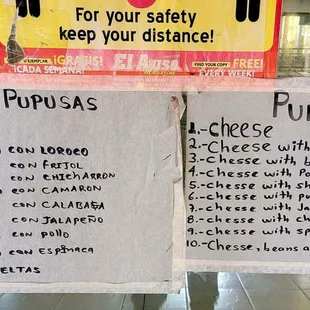 For your safety
keep your distance!
EJEMPLAR ¡GRATIS!
¡CADA SEMANA!
El Aviso
MAGAZINE
FIND YOUR COPY FREE!
EVERY WEEK!
PUPUSAS
CON LOROCO
CON FRIJOL
CON CHICHARRON
CON CAMARON
CON CALABASA
CON JALAPEÑO
CON POLLO
CON ESPINACA
ELTAS
PU
1.-Cheese
2.-Cheese with
3.-Chesse with b
4.-Chesse with Po
5.-Chesse with sh
6.-Chesse with pu
7.-Chesse with Ja
8.-Chesse with ch
9.-Chesse with sp
10.-Chesse, beans a